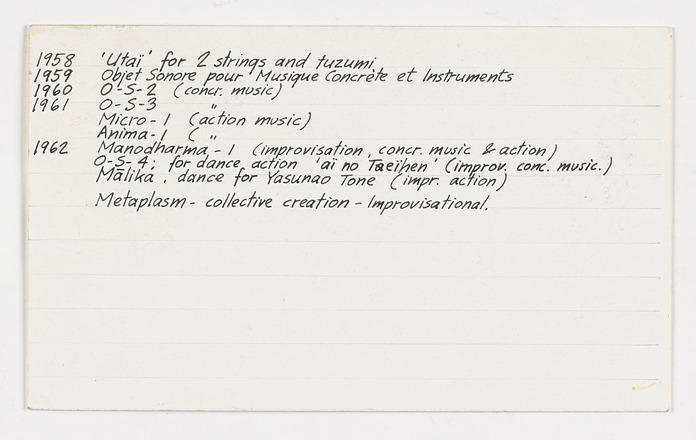 1958 'Utaï' for 2 strings and tuzumi.
1959 Objet Sonore pour Musique Concrète et Instruments
1960 O-S-2 (concr. music)
1961 O-S-3 "
Micro-1 (action music)
Anima-1 ( "
1962 Manodharma-1 (improvisation, concr. music & action)
O-S-4: for dance action 'aï no Taeïhen' (improv. conc. music.)
Mālikā, dance for Yasunao Tone (impr. action)
Metaplasm - collective creation - Improvisational.